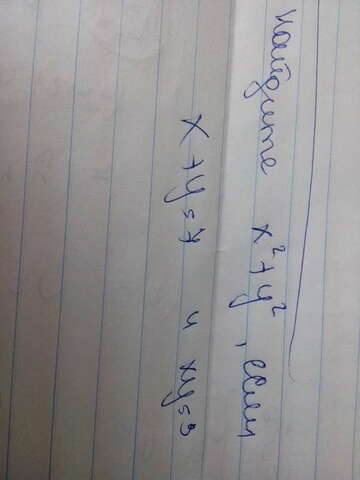 найдите x²+y², если
x+y=7 и xy=3